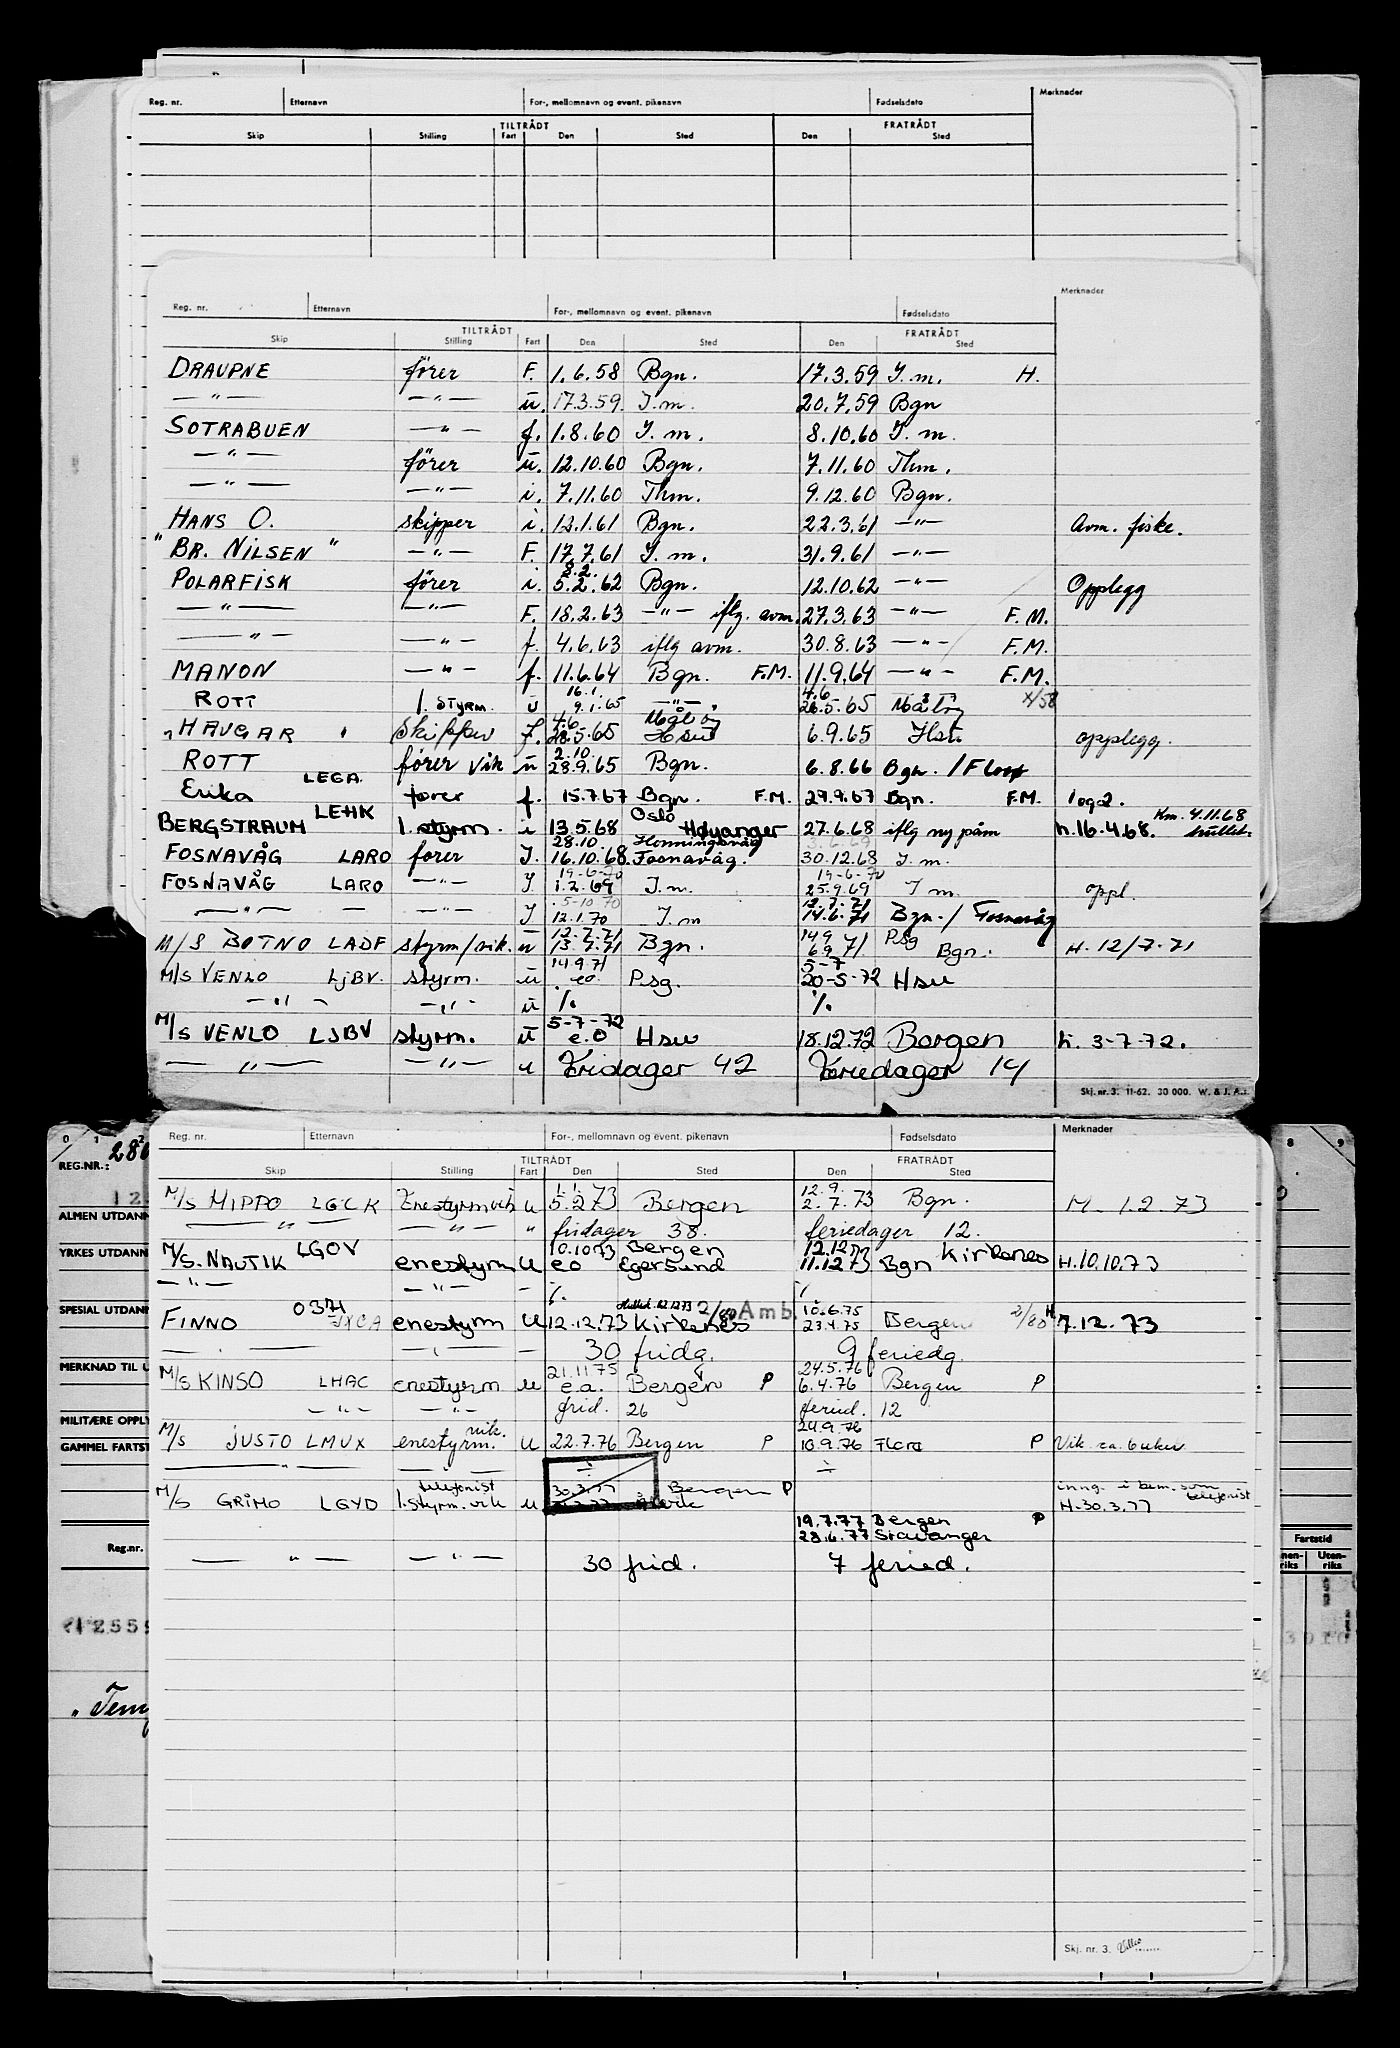 Reg. nr. Etternavn For-, mellomnavn og event. pikenavn Fødselsdato Merknader
TILTRÅDT FRATRÅDT
Skip Stilling Fart Den Sted Den Sted
Reg. nr. Etternavn For-, mellomnavn og event. pikenavn Fødselsdato Merknader
TILTRÅDT FRATRÅDT
Skip Stilling Fart Den Sted Den Sted
DRAUPNE fører F. 1.6.58 Bgn. 17.3.59 I. m. H.
—"— —"— u. 17.3.59. I. m. 20.7.59 Bgn
SOTRABUEN —"— f. 1.8.60 I. m. 8.10.60 I. m.
—"— fører u. 12.10.60 Bgn. 7.11.60 Thm.
—"— —"— i. 7.11.60 Thm. 9.12.60 Bgn.
HANS O. skipper i. 12.1.61 Bgn. 22.3.61 —"— Avm. fiske.
"BR. NILSEN" —"— F. 17.7.61 I. m. 31.9.61 —"—
8.2.
POLARFISK fører i. 5.2.62 Bgn. 12.10.62 —"— Opplegg
—"— —"— F. 18.2.63 —"— iflg. avm. 27.3.63 —"— F.M.
—"— —"— f. 4.6.63 iflg avm. 30.8.63 —"— F.M.
MANON —"— f. 11.6.64 Bgn. F.M. 11.9.64 —"— F.M.
16.1. 4.6
ROTT 1. styrm. u 9.1.65 —"— 26.5.65 Måløy x/58
4.6 Måløy
"HAUGAR" skipper f. 28.5.65 Hsu 6.9.65 Hsu opplegg.
2.10.
ROTT fører vik u 28.9.65 Bgn. 6.8.66 Bgn. / Florø
LEGA
Erika fører f. 15.7.67 Bgn. F.M. 29.9.67 Bgn. F.M. 1og2.
LEHK Oslo Km. 4.11.68
BERGSTRAUM 1. styrm. i 13.5.68 Høyanger 27.6.68 iflg ny påm h.16.4.68.
28.10. Honningsvåg 3.6.69
FOSNAVÅG LARO fører I. 16.10.68. Fosnavåg. 30.12.68 I. m.
19-6-70 19-6-70
FOSNAVÅG LARO —"— I 1.2.69 I. m. 25.9.69 I m. oppl.
5-10 70 12.7.71
—"— — —"— I 12.1.70 I. m 14.6.71 Bgn. / Fosnavåg
12.7.71 14.9 Psg
M/S BOTNO LADF styrm/vik. u 13.7.71 Bgn. 6.9.71 Bgn. H. 12/7-71
14.9.71 5-7
M/S VENLO LJBV. styrm. u e.o. Psg. 20-5-72 Hsu
—"— —"— u ./. ./.
5-7-72
M/S VENLO LJBV styrm. u e.o Hsu 18.12.72 Bergen h. 3-7-72.
—"— —"— u Fridager 42 Feriedager 14
Skj. nr. 3. 11-62. 30 000. W. & J. A.s
0 1 2 8 9
REG.NR.: 280
ALMEN UTDANN
YRKES UTDANN
SPESIAL UTDANN
MERKNAD TIL U
MILITÆRE OPPLY
GAMMEL FARTST
Reg.nr.
2559
"Tem
Fartstid
nen-riks Uten-riks
Reg. nr. Etternavn For-, mellomnavn og event. pikenavn Fødselsdato Merknader
TILTRÅDT FRATRÅDT
Skip Stilling Fart Den Sted Den Sted
1.1. 12.9.
M/S MIPPO LGCK Enestyrmvik u 5.2.73 Bergen 2.7.73 Bgn. M. 1.2.73
—"— —"— " fridager 38. feriedager 12.
LGOV 10.10.73 Bergen 12.12.73 Kirkenes
M/S. NAUTIK enestyrm u e.o Egersund 11.12.73 Bgn H.10.10.73
—"— —"— — ./. ./.
0371 2/80 Amb. 10.6.75 2/80 H
FINNO JXCA enestyrm u 12.12.73 Kirkenes 23.4.75 Bergen 7.12.73
—"— — 30 fridg. 9 feriedg.
21.11 75 24.5.76
M/S KINSO LHAC enestyrm u e.a. Bergen P 6.4.76 Bergen P
—"— —"— frid. 26 feried. 12
vik. 24.9.76
M/S JUSTO LMUX enestyrm. u 22.7.76 Bergen P 10.9.76 Flora P Vik ca. 6 uker
—"—
telefonist 30.3.77 Bergen P inng. i bem. som telefonist
M/S GRIMO LGYD 1.styrm. vik u H-30.3.77
19.7.77 Bergen P
28.6.77 Stavanger
—"— —"— 30 frid. 7 feried.
Skj. nr. 3.